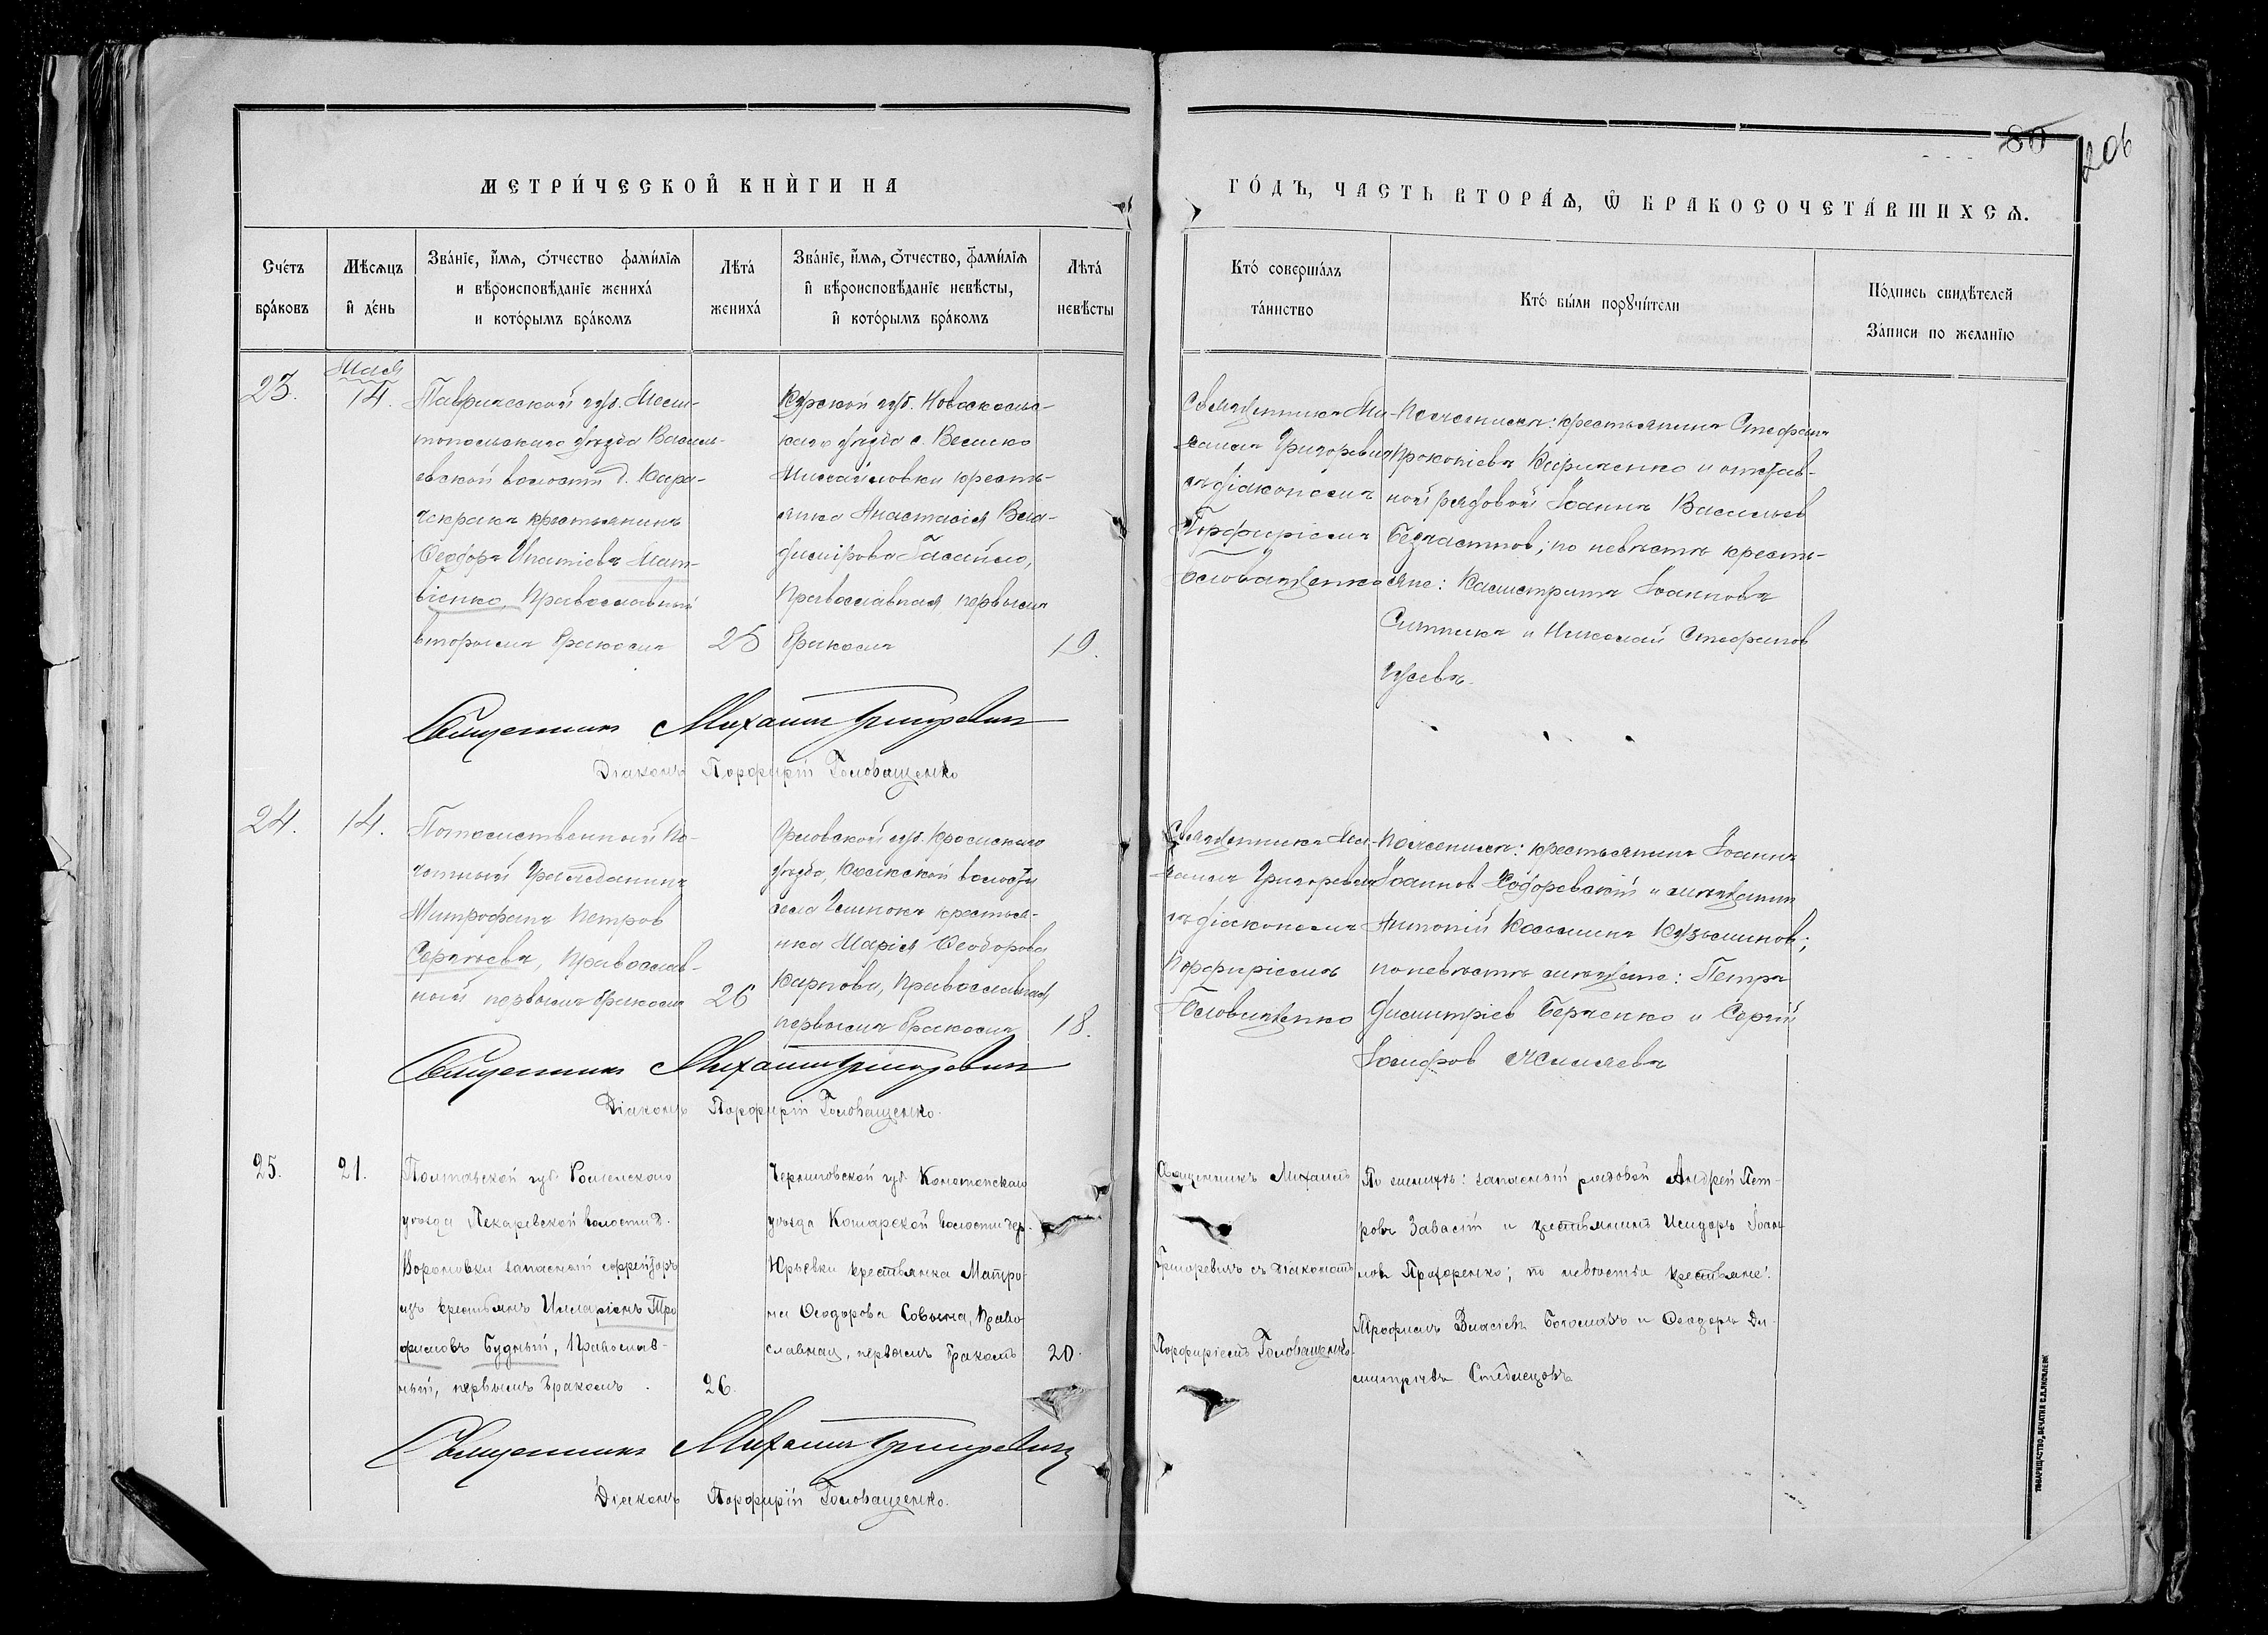 80
206
МЕТРИ́ЧЕСКОЙ КНИ́ГИ НА
ГО́ДЪ, ЧАСТЬ ВТОРА́Ѧ, Ѡ҆ БРАКОСОЧЕТА́ВШИХСѦ.
Сче́тъ
бра́ковъ
Мѣ́сѧцъ
и҆ де́нь
Зва́нїе, и҆́мѧ, ѻ҆́тчество фами́лїѧ
и вѣроисповѣ́данїе жениха́
и кото́рымъ бра́комъ
Лѣта́
жениха́
Зва́нїе, и҆́мѧ, ѻ҆́тчество, фами́лїѧ
и҆ вѣроисповѣ́данїе невѣ́сты,
и҆ кото́рымъ бра́комъ
Лѣта́
невѣ́сты
Кто́ соверша́лъ
та́инство
Кто́ бы́ли порꙋчи́тели
По́дпись свидѣ́телей
За́писи по жела́нїю
23.
Мая
14.
Таврической губ. Мели-
топольскаго уѣзда Василь-
евской волости д. Кара-
чекрака крестьянинъ
Ѳеодоръ Игнатіевъ Мат-
віенко, Православный
вторымъ бракомъ
25
Курской губ. Новооскольс-
каго уѣзда с. Велико
Михайловки кресть-
янка Анастасія Вла-
димірова
Православная первымъ
бракомъ
19.
Священникъ Ми-
хаилъ Григоревичъ
съ діакономъ
Порфиріемъ
Головащенко
По женихѣ: крестьянинъ Стефанъ
Прокопіевъ Кириченко и отстав-
ной рядовой Іоаннъ Васильев
Безчастнов; по невѣстѣ кресть-
яне: Калистратъ Іоанновъ
Ситникъ и Николай Стефанов
Гусевъ.
Священникъ Михаилъ Григоревичъ
Діаконъ Порфирій Головащенко
24.
14.
Потомственный По-
четный Гражданинъ
Митрофанъ Петров
Сергѣевъ, Православ-
ный первымъ бракомъ
26
Орловской губ. Кромскаго
уѣзда, волости
села крестья-
нка Марія Ѳеодорова
Карпова, Православная
первымъ бракомъ
18.
Священникъ Ми-
хаилъ Григоревичъ
съ діакономъ
Порфиріемъ
Головащенко
По женихѣ: крестьянинъ Іоаннъ
Іоаннов Ходоревскій и мѣщанин
Антоній Касьминъ Кузьминов;
по невѣстѣ мѣщане: Петръ
Димитріев Берченко и Сергій
Священникъ Михаилъ Григоревичъ
Діаконъ Порфирій Головащенко.
25.
21.
Полтавской губ. Роменскаго
уѣзда Пекаревской волости д.
Вороновки запасный ефрейторъ
изъ крестьянъ Илларіонъ Тро
фимовъ Будный, Православ-
ный, первымъ бракомъ.
26.
Черниговской губ. Конотопскаго
уѣзда Кошарской волости дер.
Юрьевки крестьянка Матро-
на Ѳеодорова Совына, Право
славная, первымъ бракомъ
20.
Священникъ Михаилъ
Григоревичъ съ діакономъ
Порфиріемъ Головащенко.
По женихѣ: запасный рядовой Андрей Пет-
ровъ Завастій и крестьянинъ Исидоръ Іоан
новъ Прохоренко; по невѣстѣ крестьяне:
Трофимъ Власіевъ Богомазъ и Ѳеодоръ Ди-
митріевъ Стеблецовъ
Священникъ Михаилъ Григоревичъ
Діаконъ Порфирій Головащенко.
ТОВАРИЩЕСТВО „ПЕЧАТНЯ С.П.ЯКОВЛЕВА"